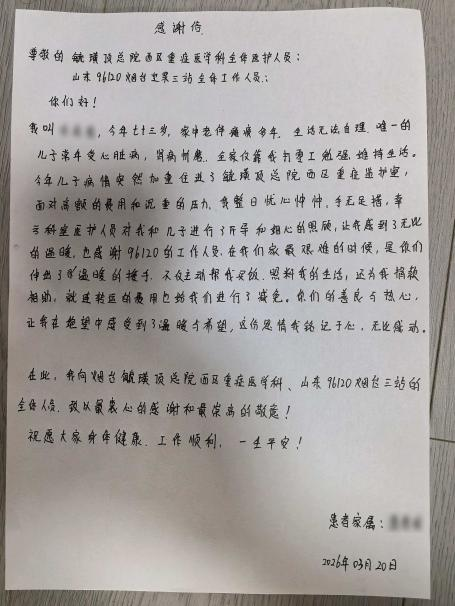 感谢信
尊敬的 毓璜顶总院西区重症医学科全体医护人员：
山东96120烟台定点三站全体工作人员：
你们好！
我叫，今年七十三岁，家中老伴瘫痪多年．生活无法自理．唯一的
儿子常年受心脏病，肾病折磨．全家仅靠我打零工勉强维持生活。
今年儿子病情突然加重住进了毓璜顶总院西区重症监护室，
面对高额的费用和沉重的压力．我整日忧心忡忡．手无足措，幸
亏科室医护人员对我和儿子进行了开导和细心的照顾，让我感到了无比
的温暖．也感谢96120的工作人员．在我们家最艰难的时候，是你们
伸出了温暖的援手．不仅主动帮我买饭．照料我的生活，还为我捐款
相助，就连转医的费用也给我们进行了减免。你们的善良与热心，
让我在绝望中感受到了温暖与希望，这份恩情我铭记于心，无比感动。
在此，我向烟台毓璜顶总院西区重症医学科、山东96120烟台三站的
全体人员．致以最衷心的感谢和最崇高的敬意！
祝愿大家身体健康．工作顺利，一生平安！
患者家属：
2026年03月20日